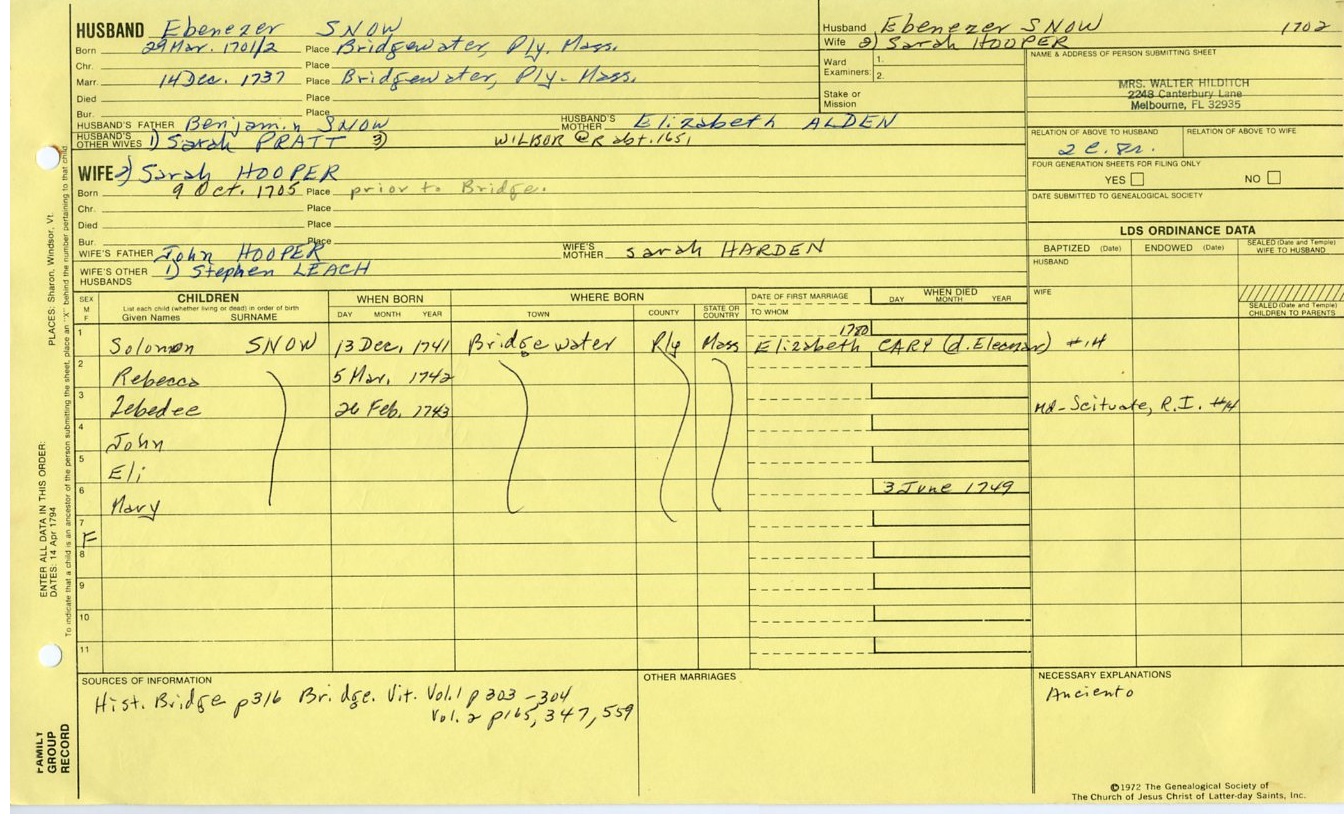 HUSBAND Ebenezer SNOW
Born 29 Mar. 1701/2 Place Bridgewater, Ply. Mass.
Chr. Place
Marr. 14 Dec. 1737 Place Bridgewater, Ply. Mass.
Died Place
Bur. Place
HUSBAND'S FATHER Benjamin SNOW HUSBAND'S MOTHER Elizabeth ALDEN
HUSBAND'S OTHER WIVES 1) Sarah PRATT 3) WILBOR @R abt. 1651
WIFE 2) Sarah HOOPER
Born 9 Oct. 1705 Place prior to Bridge.
Chr. Place
Died Place
Bur. Place
WIFE'S FATHER John HOOPER WIFE'S MOTHER Sarah HARDEN
WIFE'S OTHER HUSBANDS 1) Stephen LEACH
Husband Ebenezer SNOW 1702
Wife 2) Sarah HOOPER
Ward Examiners: 1.
2.
Stake or Mission
NAME & ADDRESS OF PERSON SUBMITTING SHEET
MRS. WALTER HILDITCH
2248 Canterbury Lane
Melbourne, FL 32935
RELATION OF ABOVE TO HUSBAND RELATION OF ABOVE TO WIFE
2 c. 8r.
FOUR GENERATION SHEETS FOR FILING ONLY
YES NO
DATE SUBMITTED TO GENEALOGICAL SOCIETY
LDS ORDINANCE DATA
BAPTIZED (Date) ENDOWED (Date) SEALED (Date and Temple) WIFE TO HUSBAND
HUSBAND
WIFE
SEALED (Date and Temple) CHILDREN TO PARENTS
SEX M F CHILDREN WHEN BORN WHERE BORN DATE OF FIRST MARRIAGE WHEN DIED
List each child (whether living or dead) in order of birth
Given Names SURNAME DAY MONTH YEAR TOWN COUNTY STATE OR COUNTRY TO WHOM DAY MONTH YEAR
1 Solomon SNOW 13 Dec. 1741 Bridgewater Ply Mass 1780 Elizabeth CARY (d. Eleonar) #14
2 Rebecca 5 Mar. 1742
3 Zebedee 26 Feb. 1743 Md-Scituate, R.I. #14
4 John
5 Eli
6 Mary 3 June 1749
7 F
8
9
10
11
SOURCES OF INFORMATION
Hist. Bridge p316 Bridge. Vit. Vol. 1 p 303-304
Vol. 2 p165, 347, 559
OTHER MARRIAGES
NECESSARY EXPLANATIONS
Anciento
©1972 The Genealogical Society of
The Church of Jesus Christ of Latter-day Saints, Inc.
PLACES: Sharon, Windsor, Vt.
ENTER ALL DATA IN THIS ORDER:
DATES: 14 Apr 1794
To indicate that a child is an ancestor of the person submitting the sheet, place an "X" behind the number pertaining to that child.
FAMILY GROUP RECORD